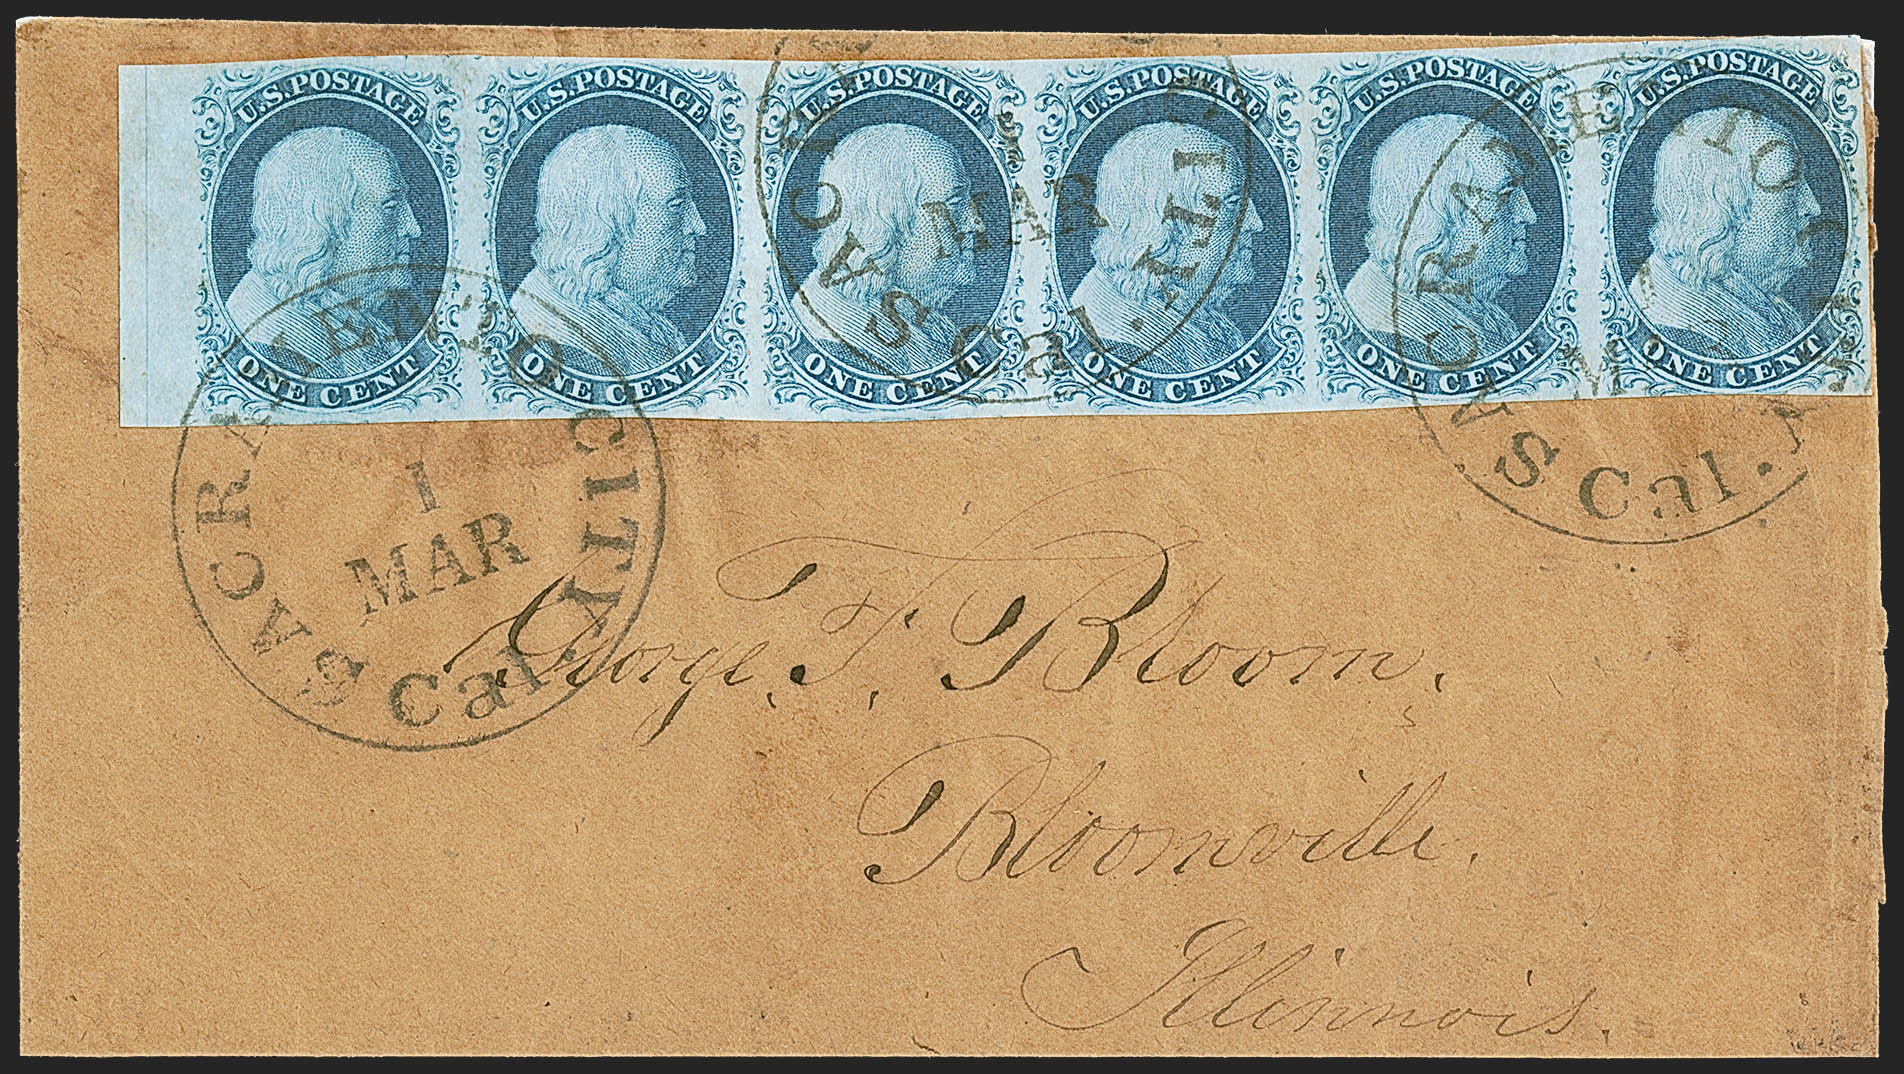 U.S. POSTAGE U.S. POSTAGE U.S. POSTAGE U.S. POSTAGE U.S. POSTAGE U.S. POSTAGE
ONE CENT ONE CENT ONE CENT ONE CENT ONE CENT ONE CENT
SACRAMENTO CITY Cal.
1
MAR
SAC CITY Cal.
MAR
SACRAMENTO CITY Cal.
George, F, Bloom.
Bloomville.
Illinnois.